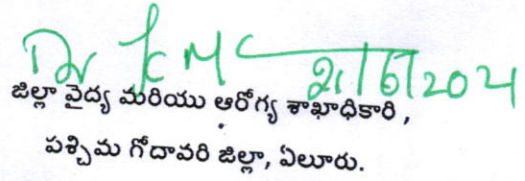 21/6/2021
జిల్లా వైద్య మరియు ఆరోగ్య శాఖాధికారి,
పశ్చిమ గోదావరి జిల్లా, ఏలూరు.